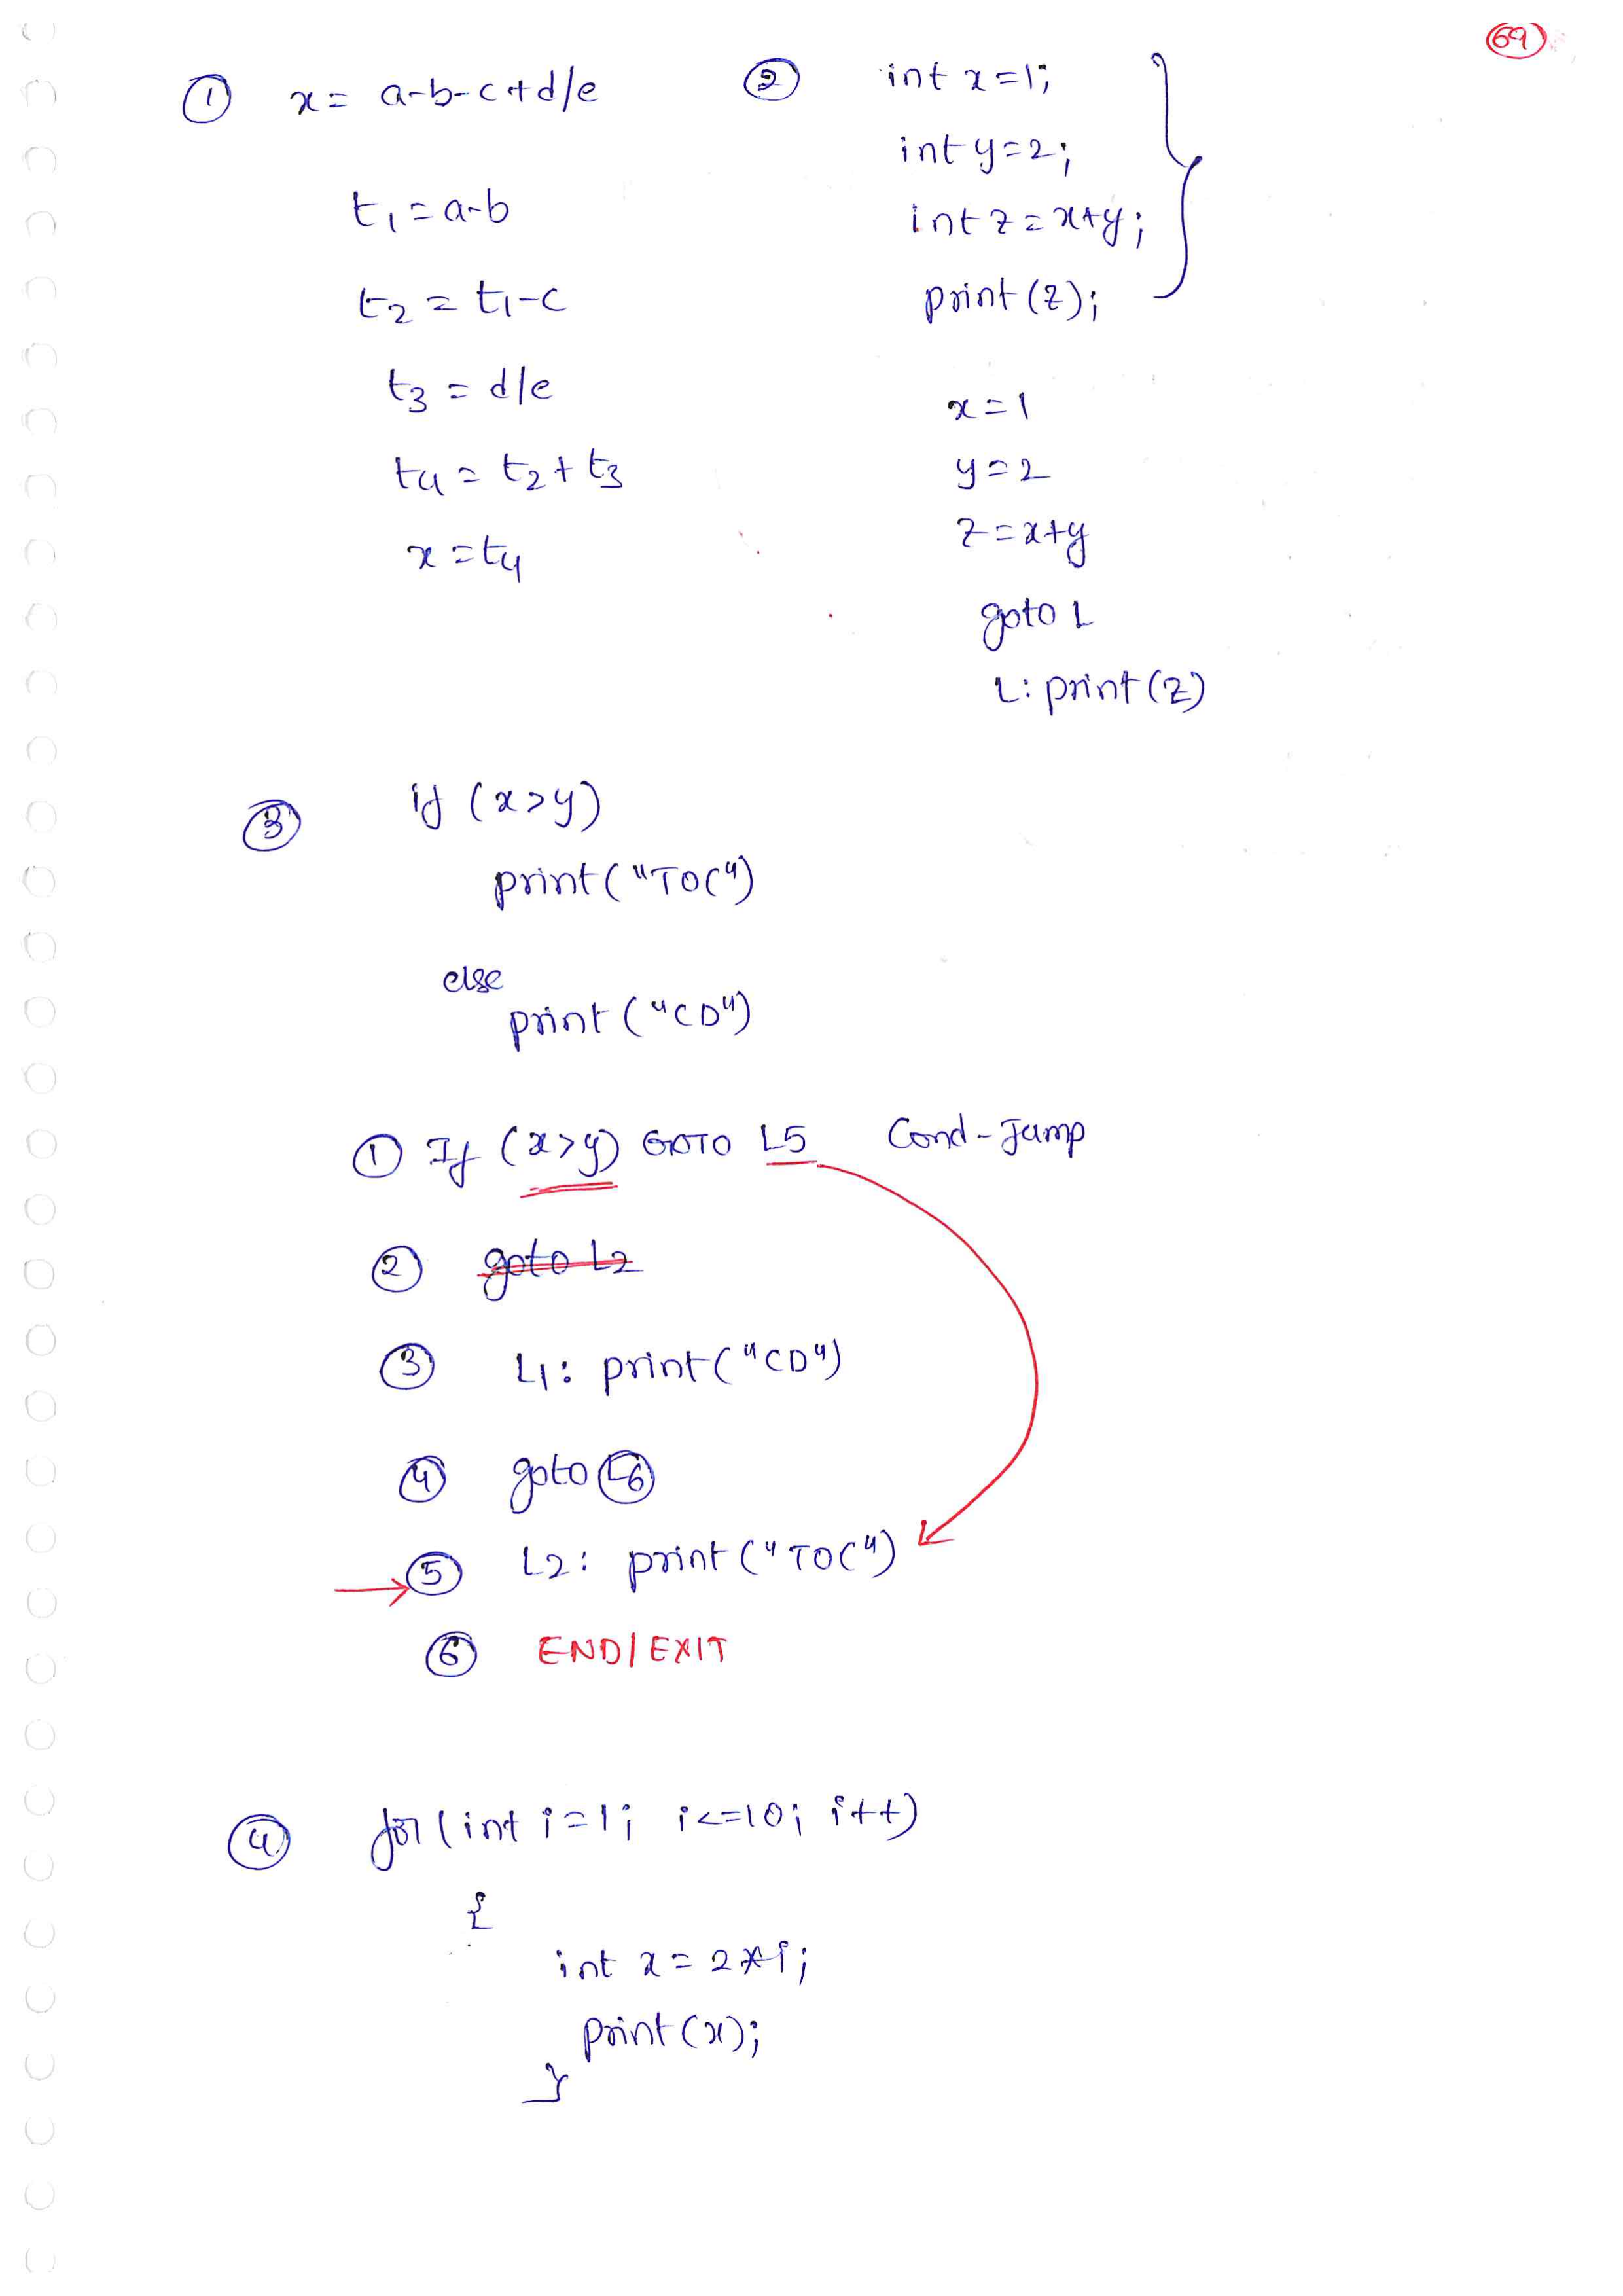 69
① x = a-b-c+d/e
t1 = a-b
t2 = t1-c
t3 = d/e
t4 = t2+t3
x = t4
② int x=1;
int y=2;
int z=x+y;
print(z);
x=1
y=2
z=x+y
goto L
L: print(z)
③ if (x>y)
print("TOC")
else
print("CD")
① If (x>y) GOTO L5 Cond-Jump
② goto L2
③ L1: print("CD")
④ goto L6
⑤ L2: print("TOC")
⑥ END/EXIT
④ for(int i=1; i<=10; i++)
{
int x=2*i;
print(x);
}